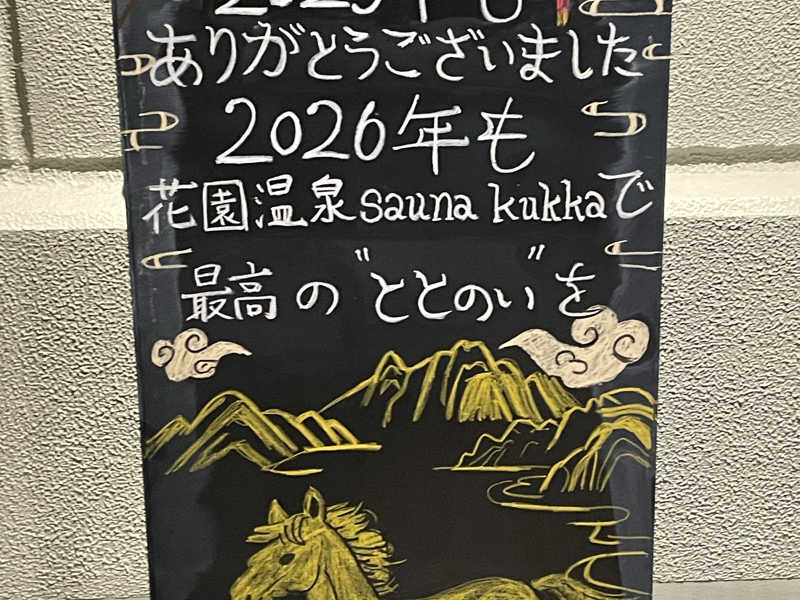 2025年も
ありがとうございました
2026年も
花園温泉sauna kukkaで
最高の"ととのい"を